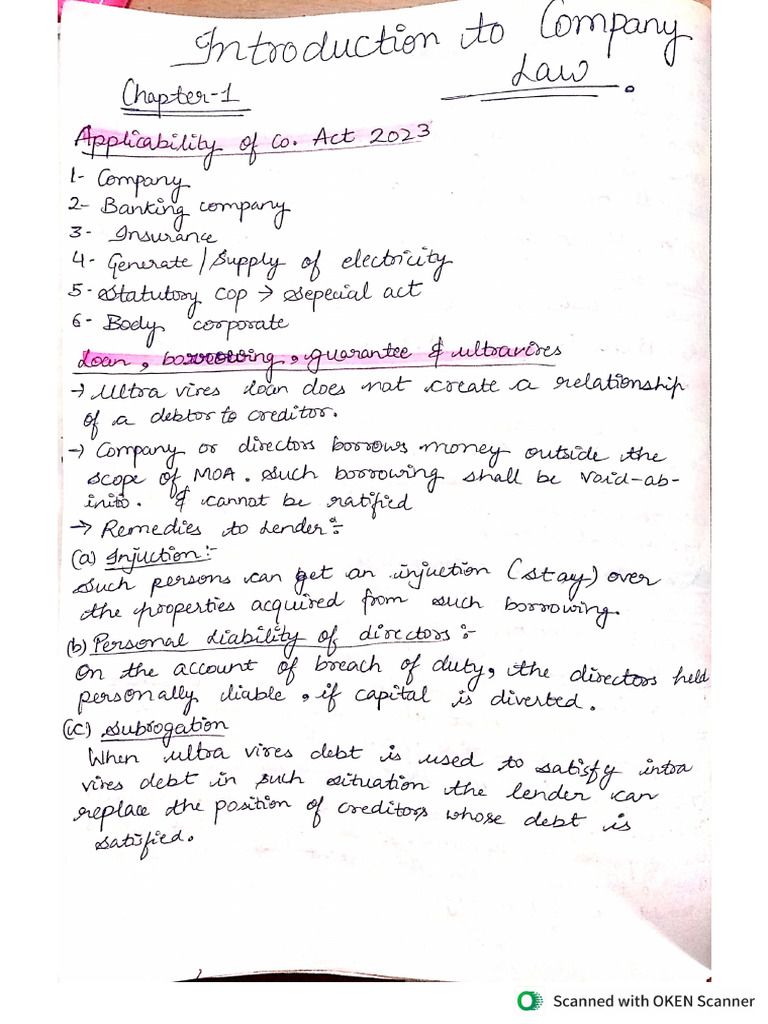 Introduction to Company
Law.
Chapter-1
Applicability of Co. Act 2023
1- Company
2- Banking company
3- Insurance
4- Generate/Supply of electricity
5- Statutory cop → Sepecial act
6- Body corporate
Loan, borrowing, guarantee & ultravires
→ Ultra vires loan does not create a relationship
of a debtor to creditor.
→ Company or directors borrows money outside the
scope of MOA. Such borrowing shall be void-ab-
inito. & cannot be ratified
→ Remedies to Lender:-
(a) Injuction:-
Such persons can get an injuction (stay) over
the properties acquired from such borrowing.
(b) Personal liability of directors:-
On the account of breach of duty, the directors held
personally liable, if capital is diverted.
(c) Subrogation
When ultra vires debt is used to satisfy intra
vires debt in such situation the lender can
replace the position of creditors whose debt is
satisfied.
Scanned with OKEN Scanner